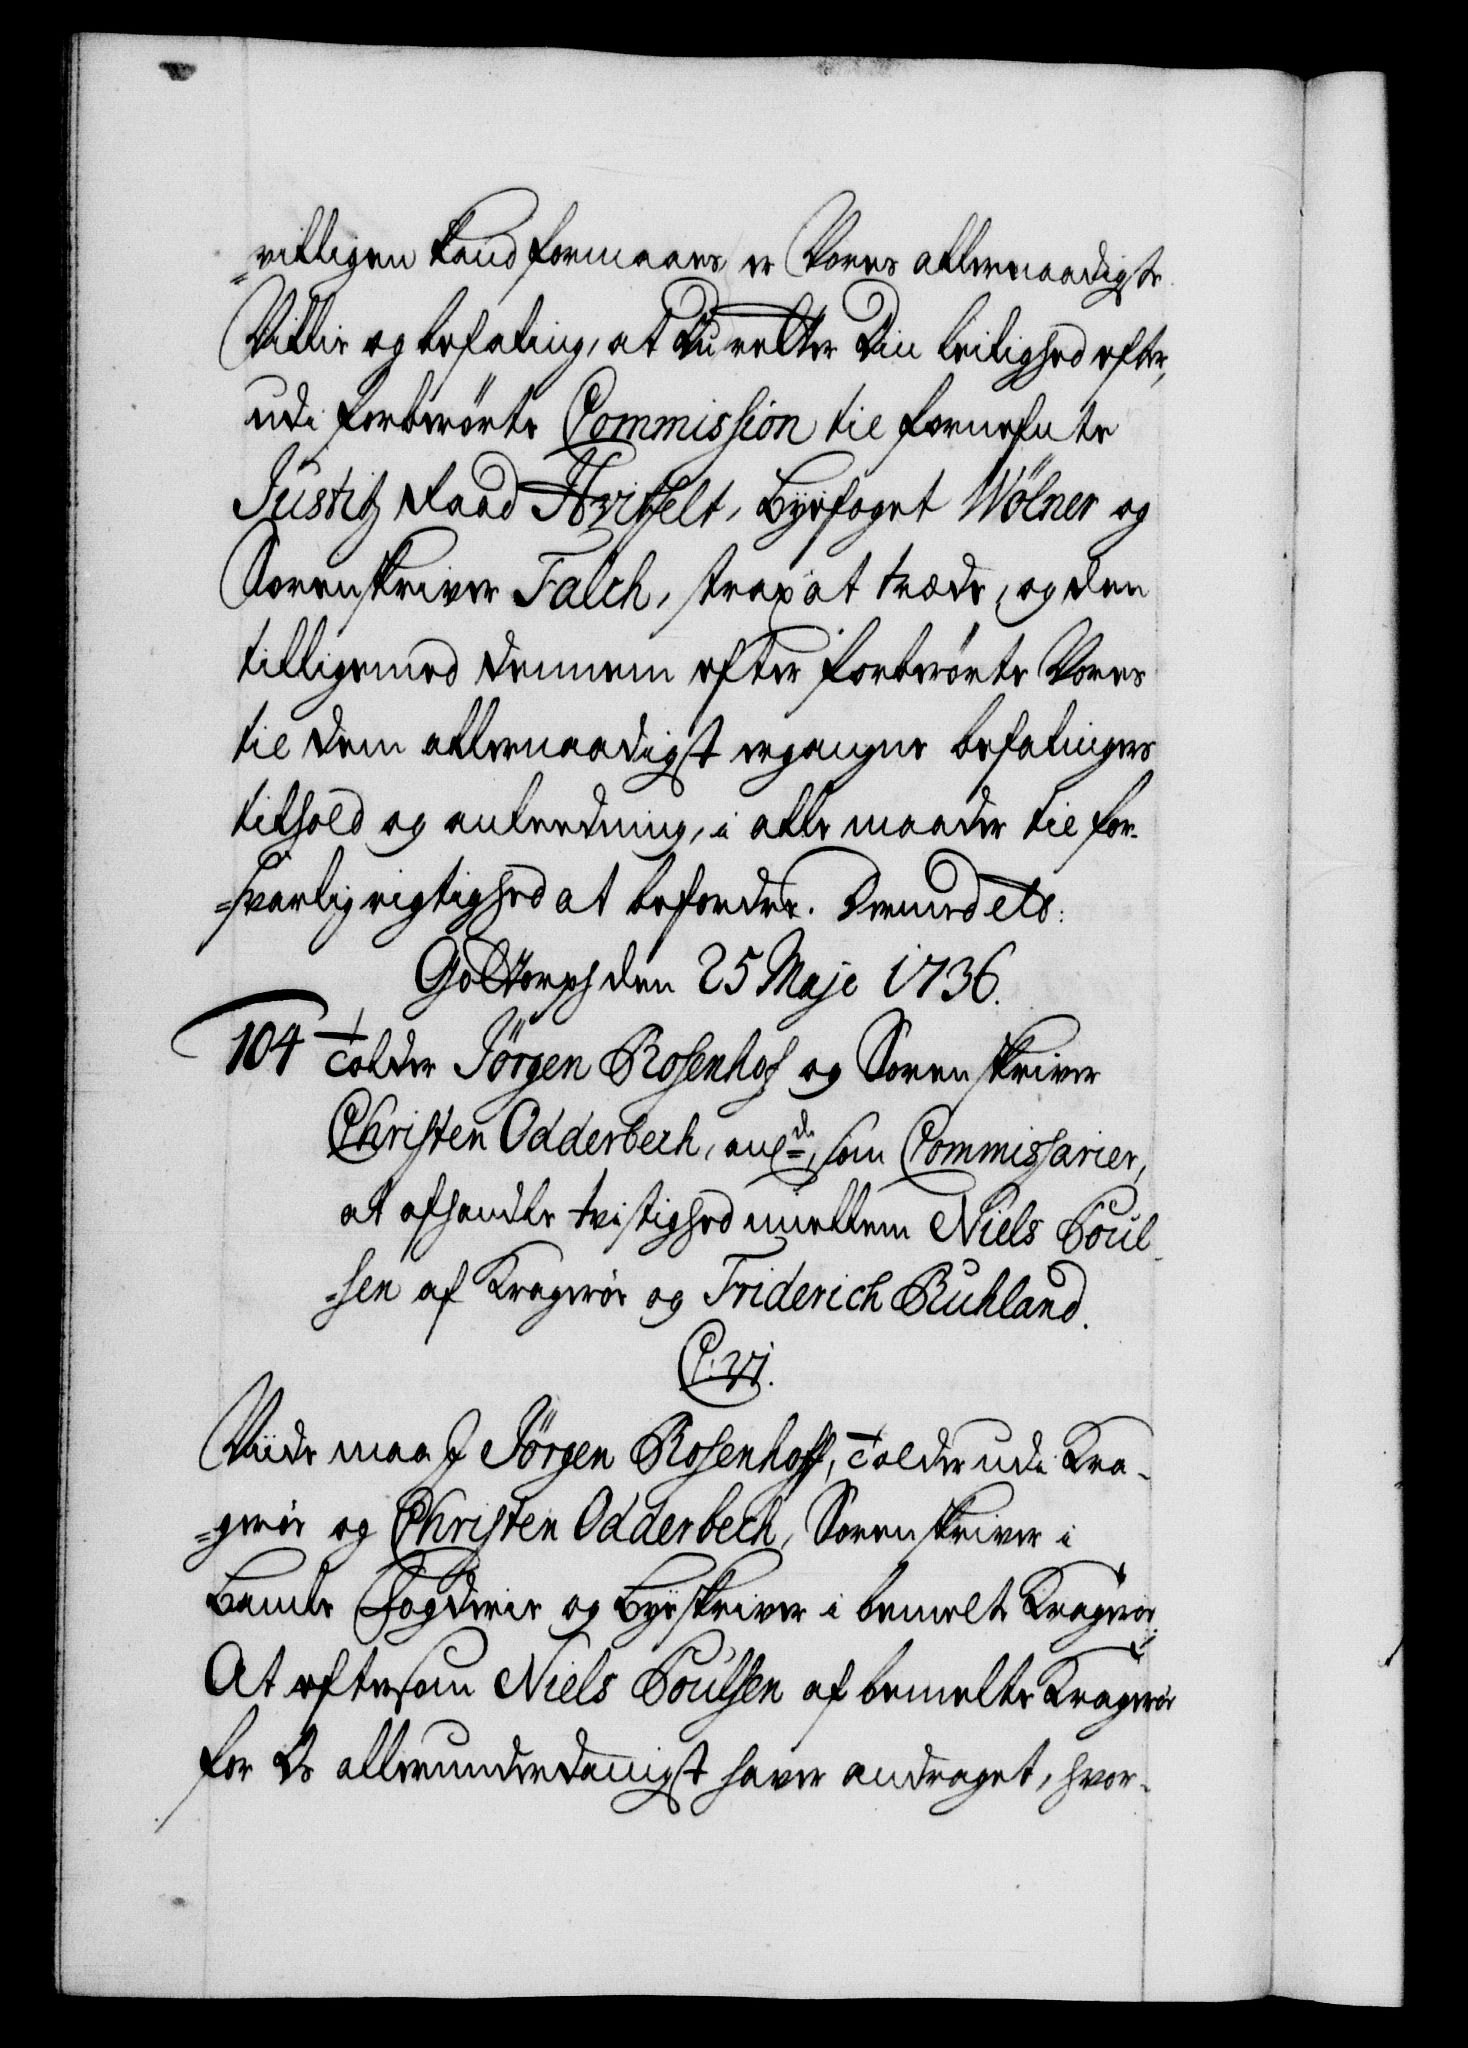 =villigen kand formaaes, er Vores allernaadigste
Villie og befaling, at Du retter Din leilighed efter,
udi forberörte Commission til fornefnte
Justitz Raad Hvisfelt, Byefoget Wölner og
Sorenskriver Falch, strax at træde, og den
tilligemed dennem efter forberörte Vores
til dem allernaadigst ergangne befalingers
tilhold og anleedning, i alle maader til for-
=svarlig rigtighed at befordre. Dermed etc:
Gottorph den 25 Maji 1736.
104 Tolder Jörgen Rosenhof og Sorenskriver
Christen Odderbech, anl:de, som Commissarier,
at afhandle tvistighed imellem Niels Poul-
=sen af Krageröe og Friderich Ruhland.
C. VI.
Viide maa I Jörgen Rosenhoff, Tolder udi Kra-
=geröe og Christen Odderbech, Sorenskriver i
Bamble Fogderie og Byeskriver i bemelte Krageröe
At eftersom Niels Poulsen af bemelte Krageröe
for Os allerunderdanigst haver andraget, hvor-